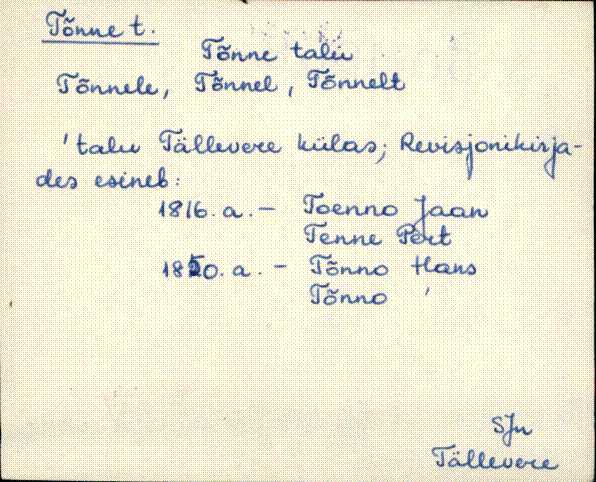 Tõnne t.
Tõnne talu
Tõnnele, Tõnnel, Tõnnelt
'talu Tällevere külas; Revisjonikirja-
des esineb:
1816. a. - Toenno Jaan
Tenne Pert
1850. a. - Tõnno Hans
Tõnno '
SJn
Tällevere